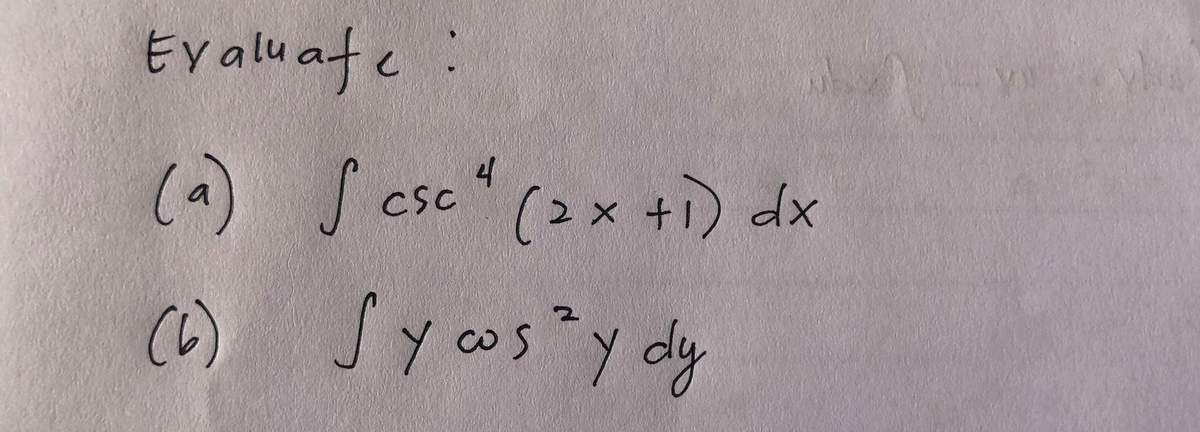 Evaluate :
(a) ∫ csc⁴ (2x +1) dx
(b) ∫ y cos² y dy